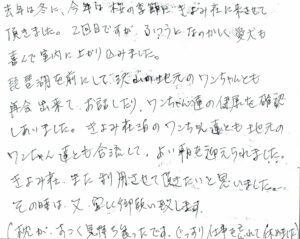 去年は冬に、今年は桜の季節にきよみ荘に来させて
頂きました。2回目ですが、るつうになつかしく愛犬も
喜んで室内に上がり込みました。
琵琶湖を前にして、沢山の地元のワンちゃんとも
再会出来て、お話ししたり、ワンちゃん達の健康を確認
しあいました。きよみ荘泊のワンちゃん達とも地元の
ワンちゃん達とも合流して、よい朝を迎えられました。
きよみ荘、また利用させて頂きたいと思いました。
その時は、又、宜しく御願い致します。
(枕が、あつく気持ち良かったです。ぐっすり仕事を忘れて休めました